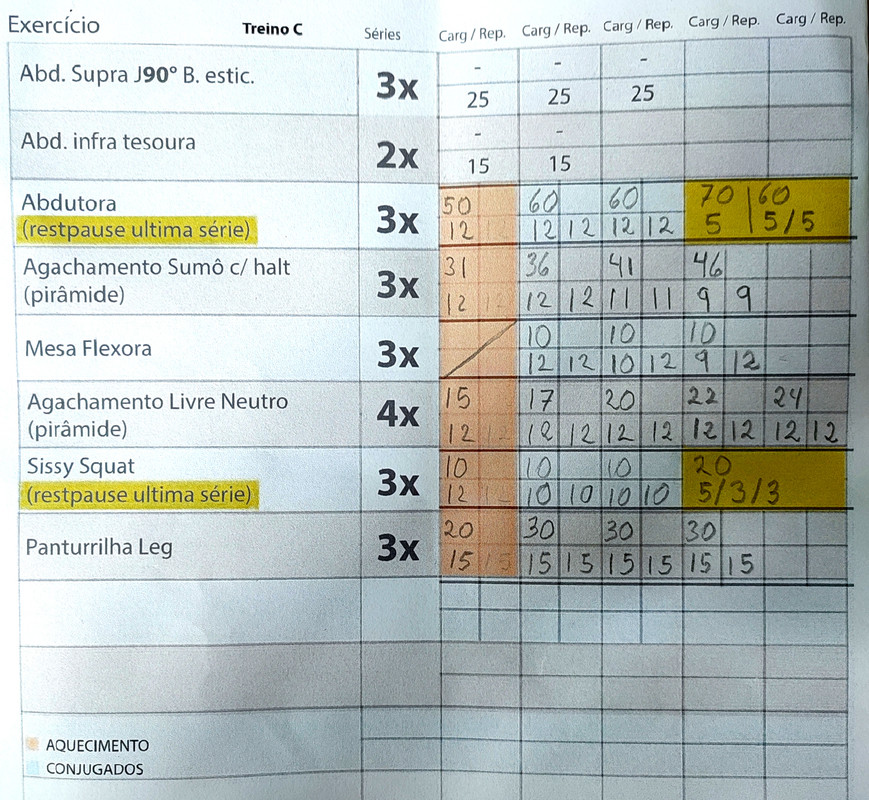 Exercício Treino C Séries Carg / Rep. Carg / Rep. Carg / Rep. Carg / Rep. Carg / Rep.
Abd. Supra J90° B. estic. 3x - - -
25 25 25
Abd. infra tesoura 2x - -
15 15
Abdutora 3x 50 60 60 70 | 60
(restpause ultima série) 12 12 12 12 12 12 5 | 5/5
Agachamento Sumô c/ halt 3x 31 36 41 46
(pirâmide) 12 12 12 12 11 11 9 9
Mesa Flexora 3x 10 10 10
12 12 10 12 9 12 -
Agachamento Livre Neutro 4x 15 17 20 22 24
(pirâmide) 12 12 12 12 12 12 12 12 12 12
Sissy Squat 3x 10 10 10 20
(restpause ultima série) 12 12 10 10 10 10 5/3/3
Panturrilha Leg 3x 20 30 30 30
15 15 15 15 15 15 15 15
AQUECIMENTO
CONJUGADOS